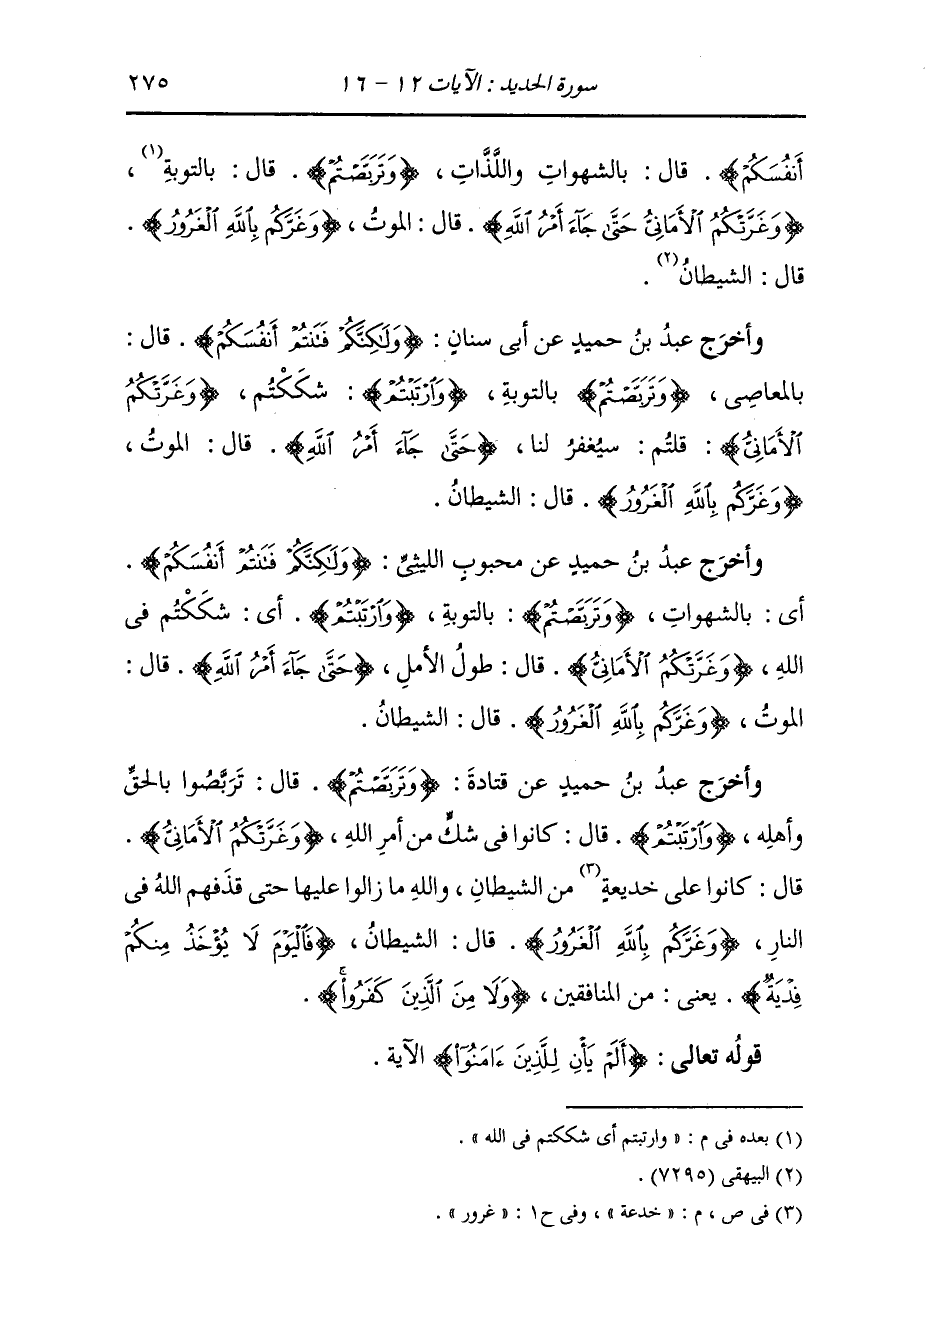 سورة الحديد : الآيات ١٢ - ١٦ ٢٧٥
أَنفُسَكُمْ﴾ . قال : بالشهواتِ واللَّذَّاتِ ، ﴿وَتَرَبَّصْتُمْ﴾ . قال : بالتوبةِ(١) ،
﴿وَغَرَّتْكُمُ ٱلْأَمَانِيُّ حَتَّىٰ جَآءَ أَمْرُ ٱللَّهِ﴾ . قال : الموتُ ، ﴿وَغَرَّكُم بِٱللَّهِ ٱلْغَرُورُ﴾ .
قال : الشيطانُ(٢) .
وأخرَج عبدُ بنُ حميدٍ عن أبى سنانٍ : ﴿وَلَٰكِنَّكُمْ فَتَنتُمْ أَنفُسَكُمْ﴾ . قال :
بالمعاصِى ، ﴿وَتَرَبَّصْتُمْ﴾ بالتوبةِ ، ﴿وَٱرْتَبْتُمْ﴾ : شكَكْتُم ، ﴿وَغَرَّتْكُمُ
ٱلْأَمَانِيُّ﴾ : قلتُم : سيُغفرُ لنا ، ﴿حَتَّىٰ جَآءَ أَمْرُ ٱللَّهِ﴾ . قال : الموتُ ،
﴿وَغَرَّكُم بِٱللَّهِ ٱلْغَرُورُ﴾ . قال : الشيطانُ .
وأخرَج عبدُ بنُ حميدٍ عن محبوبٍ الليثىِّ : ﴿وَلَٰكِنَّكُمْ فَتَنتُمْ أَنفُسَكُمْ﴾ .
أى : بالشهواتِ ، ﴿وَتَرَبَّصْتُمْ﴾ : بالتوبةِ ، ﴿وَٱرْتَبْتُمْ﴾ . أى : شكَكْتُم فى
اللهِ ، ﴿وَغَرَّتْكُمُ ٱلْأَمَانِيُّ﴾ . قال : طولُ الأملِ ، ﴿حَتَّىٰ جَآءَ أَمْرُ ٱللَّهِ﴾ . قال :
الموتُ ، ﴿وَغَرَّكُم بِٱللَّهِ ٱلْغَرُورُ﴾ . قال : الشيطانُ .
وأخرَج عبدُ بنُ حميدٍ عن قتادةَ : ﴿وَتَرَبَّصْتُمْ﴾ . قال : تَرَبَّصُوا بالحقِّ
وأهلِه ، ﴿وَٱرْتَبْتُمْ﴾ . قال : كانوا فى شكٍّ من أمرِ اللهِ ، ﴿وَغَرَّتْكُمُ ٱلْأَمَانِيُّ﴾ .
قال : كانوا على خديعةٍ(٣) من الشيطانِ ، واللهِ ما زالوا عليها حتى قذَفهم اللهُ فى
النارِ ، ﴿وَغَرَّكُم بِٱللَّهِ ٱلْغَرُورُ﴾ . قال : الشيطانُ ، ﴿فَٱلْيَوْمَ لَا يُؤْخَذُ مِنكُمْ
فِدْيَةٌ﴾ . يعنى : من المنافقين ، ﴿وَلَا مِنَ ٱلَّذِينَ كَفَرُوا۟ۚ﴾ .
قولُه تعالى : ﴿أَلَمْ يَأْنِ لِلَّذِينَ ءَامَنُوٓا۟﴾ الآية .
(١) بعده فى م : « وارتبتم أى شككتم فى الله » .
(٢) البيهقى (٧٢٩٥) .
(٣) فى ص ، م : « خدعة » ، وفى ح١ : « غرور » .